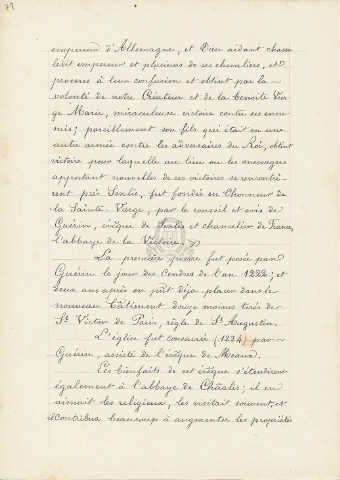 72
empereur d'Allemagne, et Dieu aidant chassa
ledit empereur et plusieurs de ses chevaliers, et
proceres à leur confusion et obtint par la
volonté de notre Créateur et de la benoite Vier
ge Marie, miraculeuse victoire contre ses enne
mis; pareillement son fils qui était en une
autre armée contre les adversaires du Roi, obtint
victoire pour laquelle au lieu ou les messagers
apportant nouvelles de ses victoires se rencontrè
rent près Senlis, fut fondée en l'honneur de
la Sainte-Vierge, par le conseil et avis de
Guérin, évêque de Senlis et chancelier de France,
l'abbaye de la Victoire. »
La première pierre fut posée par
Guérin le jour des Cendres de l'an 1222; et
deux ans après on put déjà placer dans le
nouveau bâtiment douze moines tirés de
St Victor de Paris, règle de St Augustin.
L'église fut consacrée (1224) par
Guérin, assisté de l'évêque de Meaux.
Les bienfaits de cet évêque s'étendirent
également à l'abbaye de Chaalis; il en
aimait les religieux, les visitait souvent, et
contribua beaucoup à augmenter les propriétés